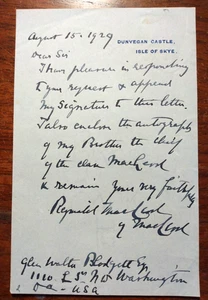 August 15. 1929
DUNVEGAN CASTLE,
ISLE OF SKYE.
Dear Sir
I have pleasure in responding
to your request & append
my signature to this letter.
I also enclose the autograph
of my Brother the chief
of the clan MacLeod
& remain yours very faithfully
Reginald MacLeod
of MacLeod
Glen Walter Blodgett Esq
1110 L St NW Washington
USA